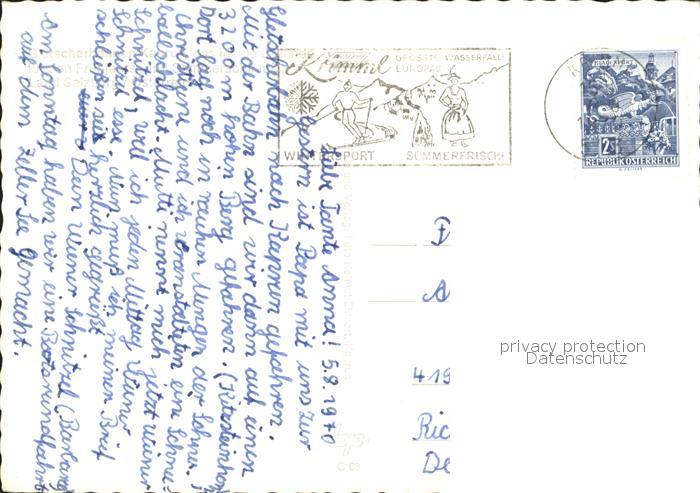 Krimml
GRÖSSTE WASSERFÄLLE
EUROPAS
WINTERSPORT SOMMERFRISCHE
KLAGENFURT
2 S
REPUBLIK ÖSTERREICH
Liebe Tante Anna! 5.8.1970
Gestern ist Papa mit uns zur
Gletscherbahn nach Kaprun gefahren.
Mit der Bahn sind wir dann auf einen
3200 m hohen Berg gefahren. (Kitzsteinhorn)
Dort lag noch in rauhen Mengen der Schnee!
Christian und ich veranstalteten eine Schnee-
ballschlacht. Mutti nennt mich jetzt Wiener
Schnitzel, weil ich jeden Mittag Wiener
Schnitzel esse. Nun muß ich meinen Brief
schließen. Sei herzlich gegrüßt
Dein Wiener Schnitzel (Barbara)
Am Sonntag haben wir eine Bootsrundfahrt
auf dem Zeller See gemacht.
D
A
419
Ric
De
C 03
privacy protection
Datenschutz